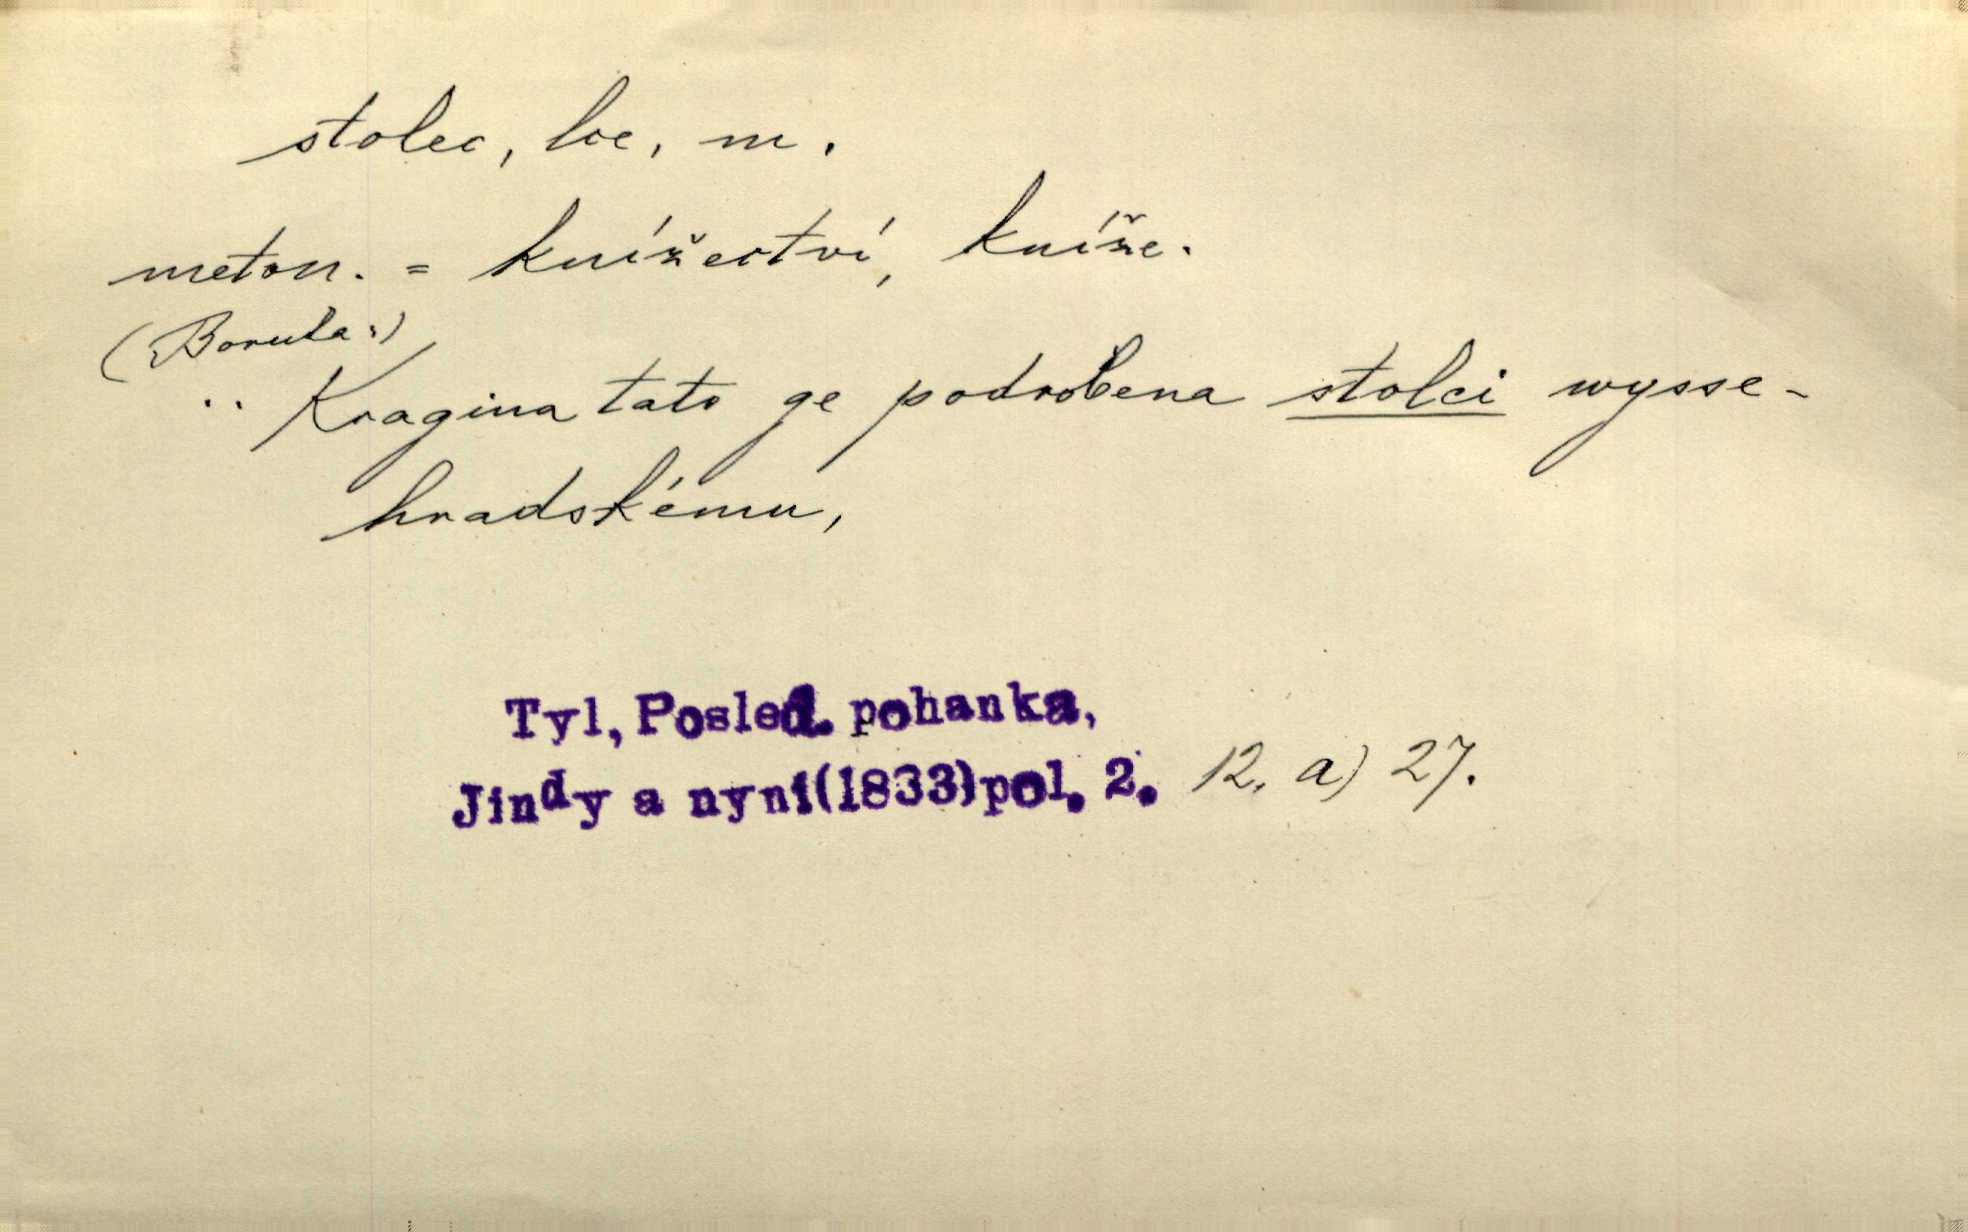 stolec, lce, m.
meton. = knížectví, kníže.
(Boruta:)
.. Kragina tato ge podrobena stolci wysse-
hradskému,
Tyl, Posled. pohanka,
Jindy a nyní(1833)pol. 2. 12. a) 27.